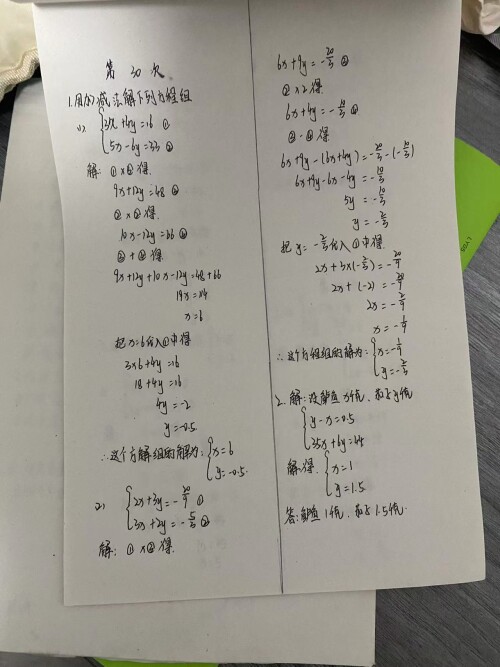 第 30 次
1.用加减法解下列方程组
(1) {3x+4y=16 ①
5x-6y=33 ②
解: ①×③得
9x+12y=48 ③
②×②得
10x-12y=66 ④
③+④得
9x+12y+10x-12y=48+66
19x=114
x=6
把x=6代入①中得
3×6+4y=16
18+4y=16
4y=-2
y=-0.5
∴这个方解组的解为: {x=6
y=-0.5.
(2) {2x+3y=-20/9 ①
3x+2y=-5/3 ②
解: ①×③得
6x+9y=-20/3 ③
②×2得
6x+4y=-10/3 ④
③-④得
6x+9y-(6x+4y)=-20/3-(-10/3)
6x+9y-6x-4y=-10/3
5y=-10/3
y=-2/3
把y=-2/3代入①中得
2x+3×(-2/3)=-20/9
2x+(-2)=-20/9
2x=-2/9
x=-1/9
∴这个方程组的解为: {x=-1/9
y=-2/3
2.解:设 x千克, y千克
{y-x=0.5
35x+6y=44
解得. {x=1
y=1.5
答: 1千克, 1.5千克.